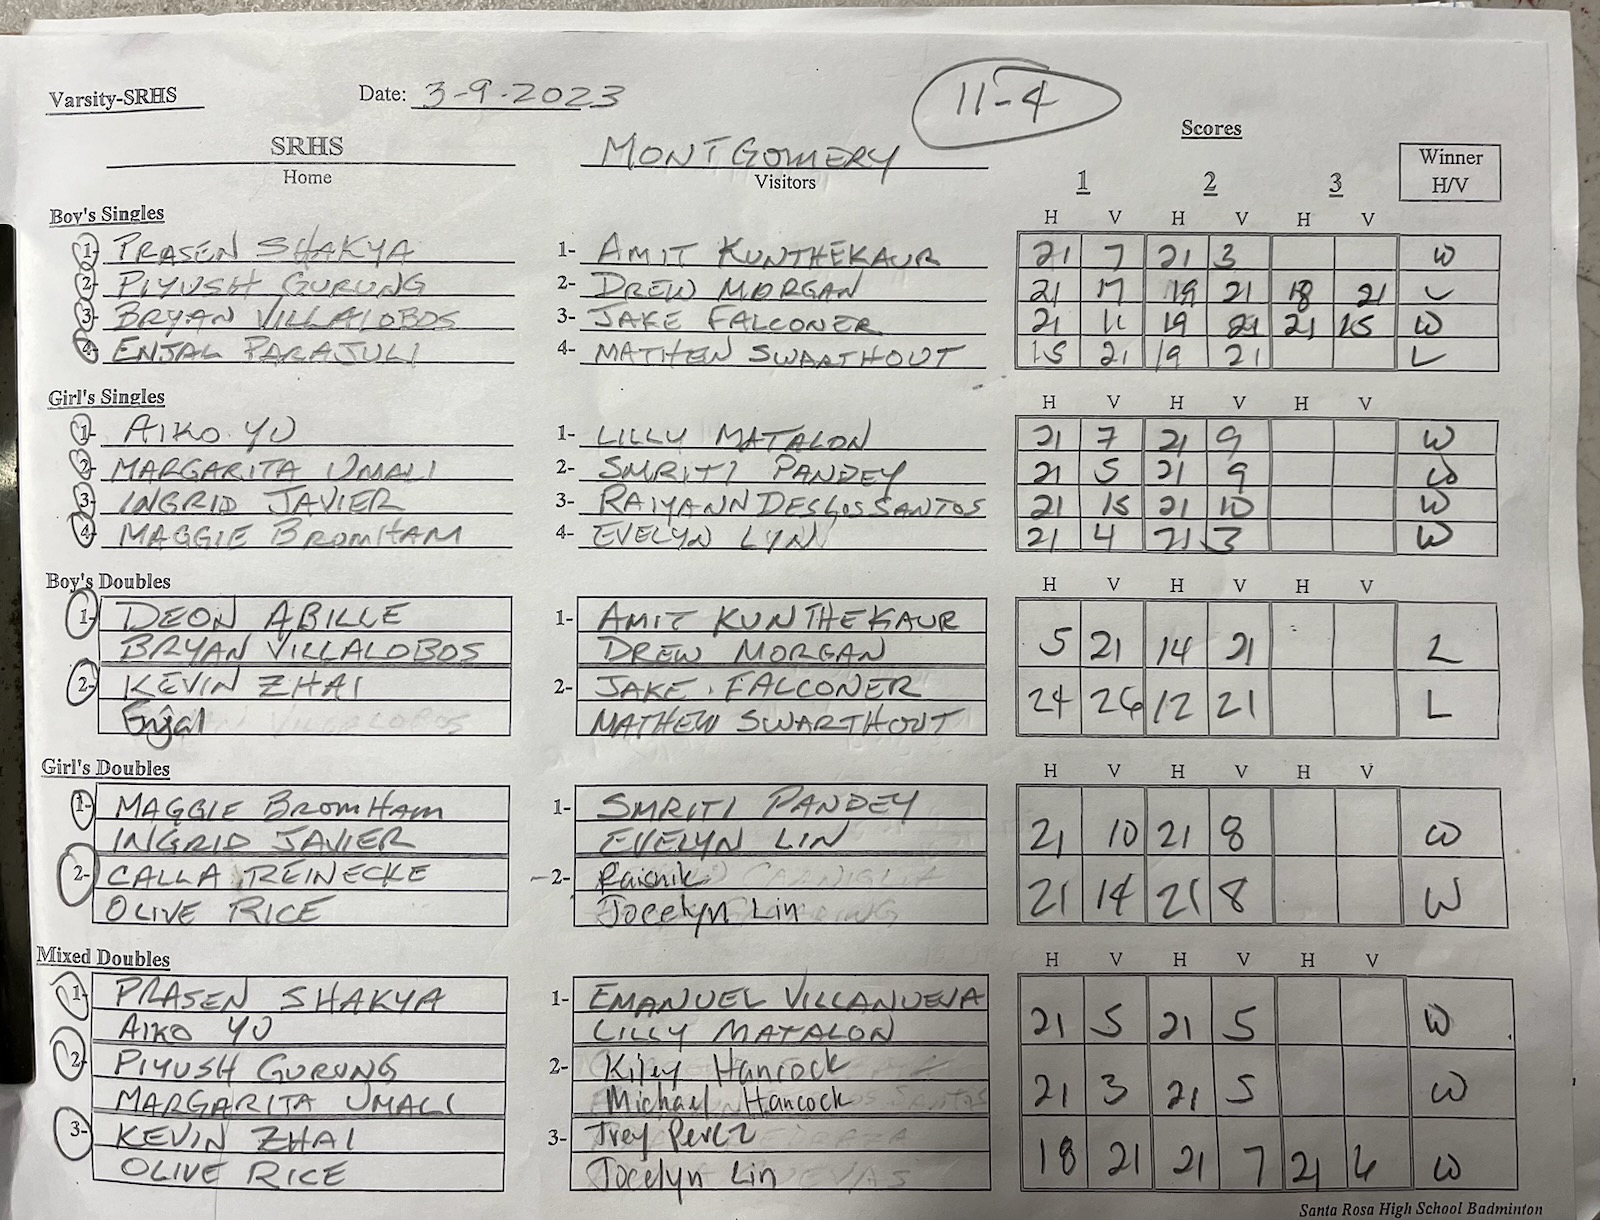 Varsity-SRHS Date: 3-9-2023 11-4
Scores
SRHS MONTGOMERY Winner
Home Visitors 1 2 3 H/V
Boy's Singles H V H V H V
1- PRASEN SHAKYA 1- AMIT KUNTHEKAUR 21 7 21 3 W
2- PIYUSH GURUNG 2- DREW MORGAN 21 17 19 21 18 21 L
3- BRYAN VILLALOBOS 3- JAKE FALCONER 21 11 19 21 21 15 W
4- ENJAL PARAJULI 4- MATHEW SWARTHOUT 15 21 19 21 L
Girl's Singles H V H V H V
1- AIKO YU 1- LILLY MATALON 21 7 21 9 W
2- MARGARITA UMALI 2- SMRITI PANDEY 21 5 21 9 W
3- INGRID JAVIER 3- RAIYANN 21 15 21 10 W
4- MAGGIE BROMHAM 4- EVELYN LYNN 21 4 21 3 W
Boy's Doubles H V H V H V
1- DEON ABILLE 1- AMIT KUNTHEKAUR 5 21 14 21 L
BRYAN VILLALOBOS DREW MORGAN
2- KEVIN ZHAI 2- JAKE FALCONER 24 26 12 21 L
Enjal MATHEW SWARTHOUT
Girl's Doubles H V H V H V
1- MAGGIE BROMHAM 1- SMRITI PANDEY 21 10 21 8 W
INGRID JAVIER EVELYN LIN
2- CALLA REINECKE 2- 21 14 21 8 W
OLIVE RICE Jocelyn Lin
Mixed Doubles H V H V H V
1- PRASEN SHAKYA 1- EMANUEL VILLANUEVA 21 5 21 5 W
AIKO YU LILLY MATALON
2- PIYUSH GURUNG 2- Kiley Hancock 21 3 21 5 W
MARGARITA UMALI Michael Hancock
3- KEVIN ZHAI 3- Trey Perez 18 21 21 7 21 6 W
OLIVE RICE Jocelyn Lin
Santa Rosa High School Badminton